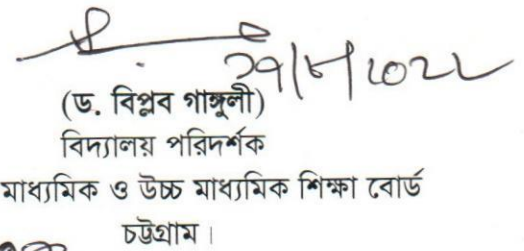 (ড. বিপ্লব গাঙ্গুলী)
বিদ্যালয় পরিদর্শক
মাধ্যমিক ও উচ্চ মাধ্যমিক শিক্ষা বোর্ড
চট্টগ্রাম।